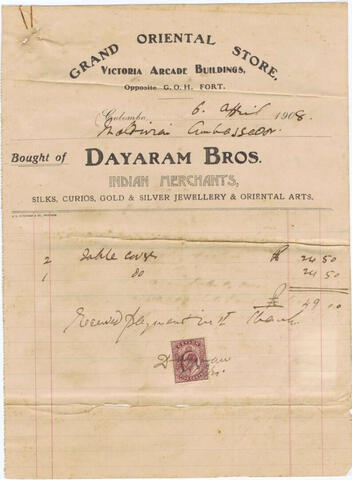 GRAND ORIENTAL STORE,
VICTORIA ARCADE BUILDINGS,
Opposite G.O.H. FORT.
Colombo, 6 April 1908.
Maldivian Ambassador.
Bought of DAYARAM BROS.
INDIAN MERCHANTS,
SILKS, CURIOS, GOLD & SILVER JEWELLERY & ORIENTAL ARTS.
2 Table covers R 24 50
1 do 24 50
R 49 00
Received payment with thanks
Dayaram
Bros.
CEYLON